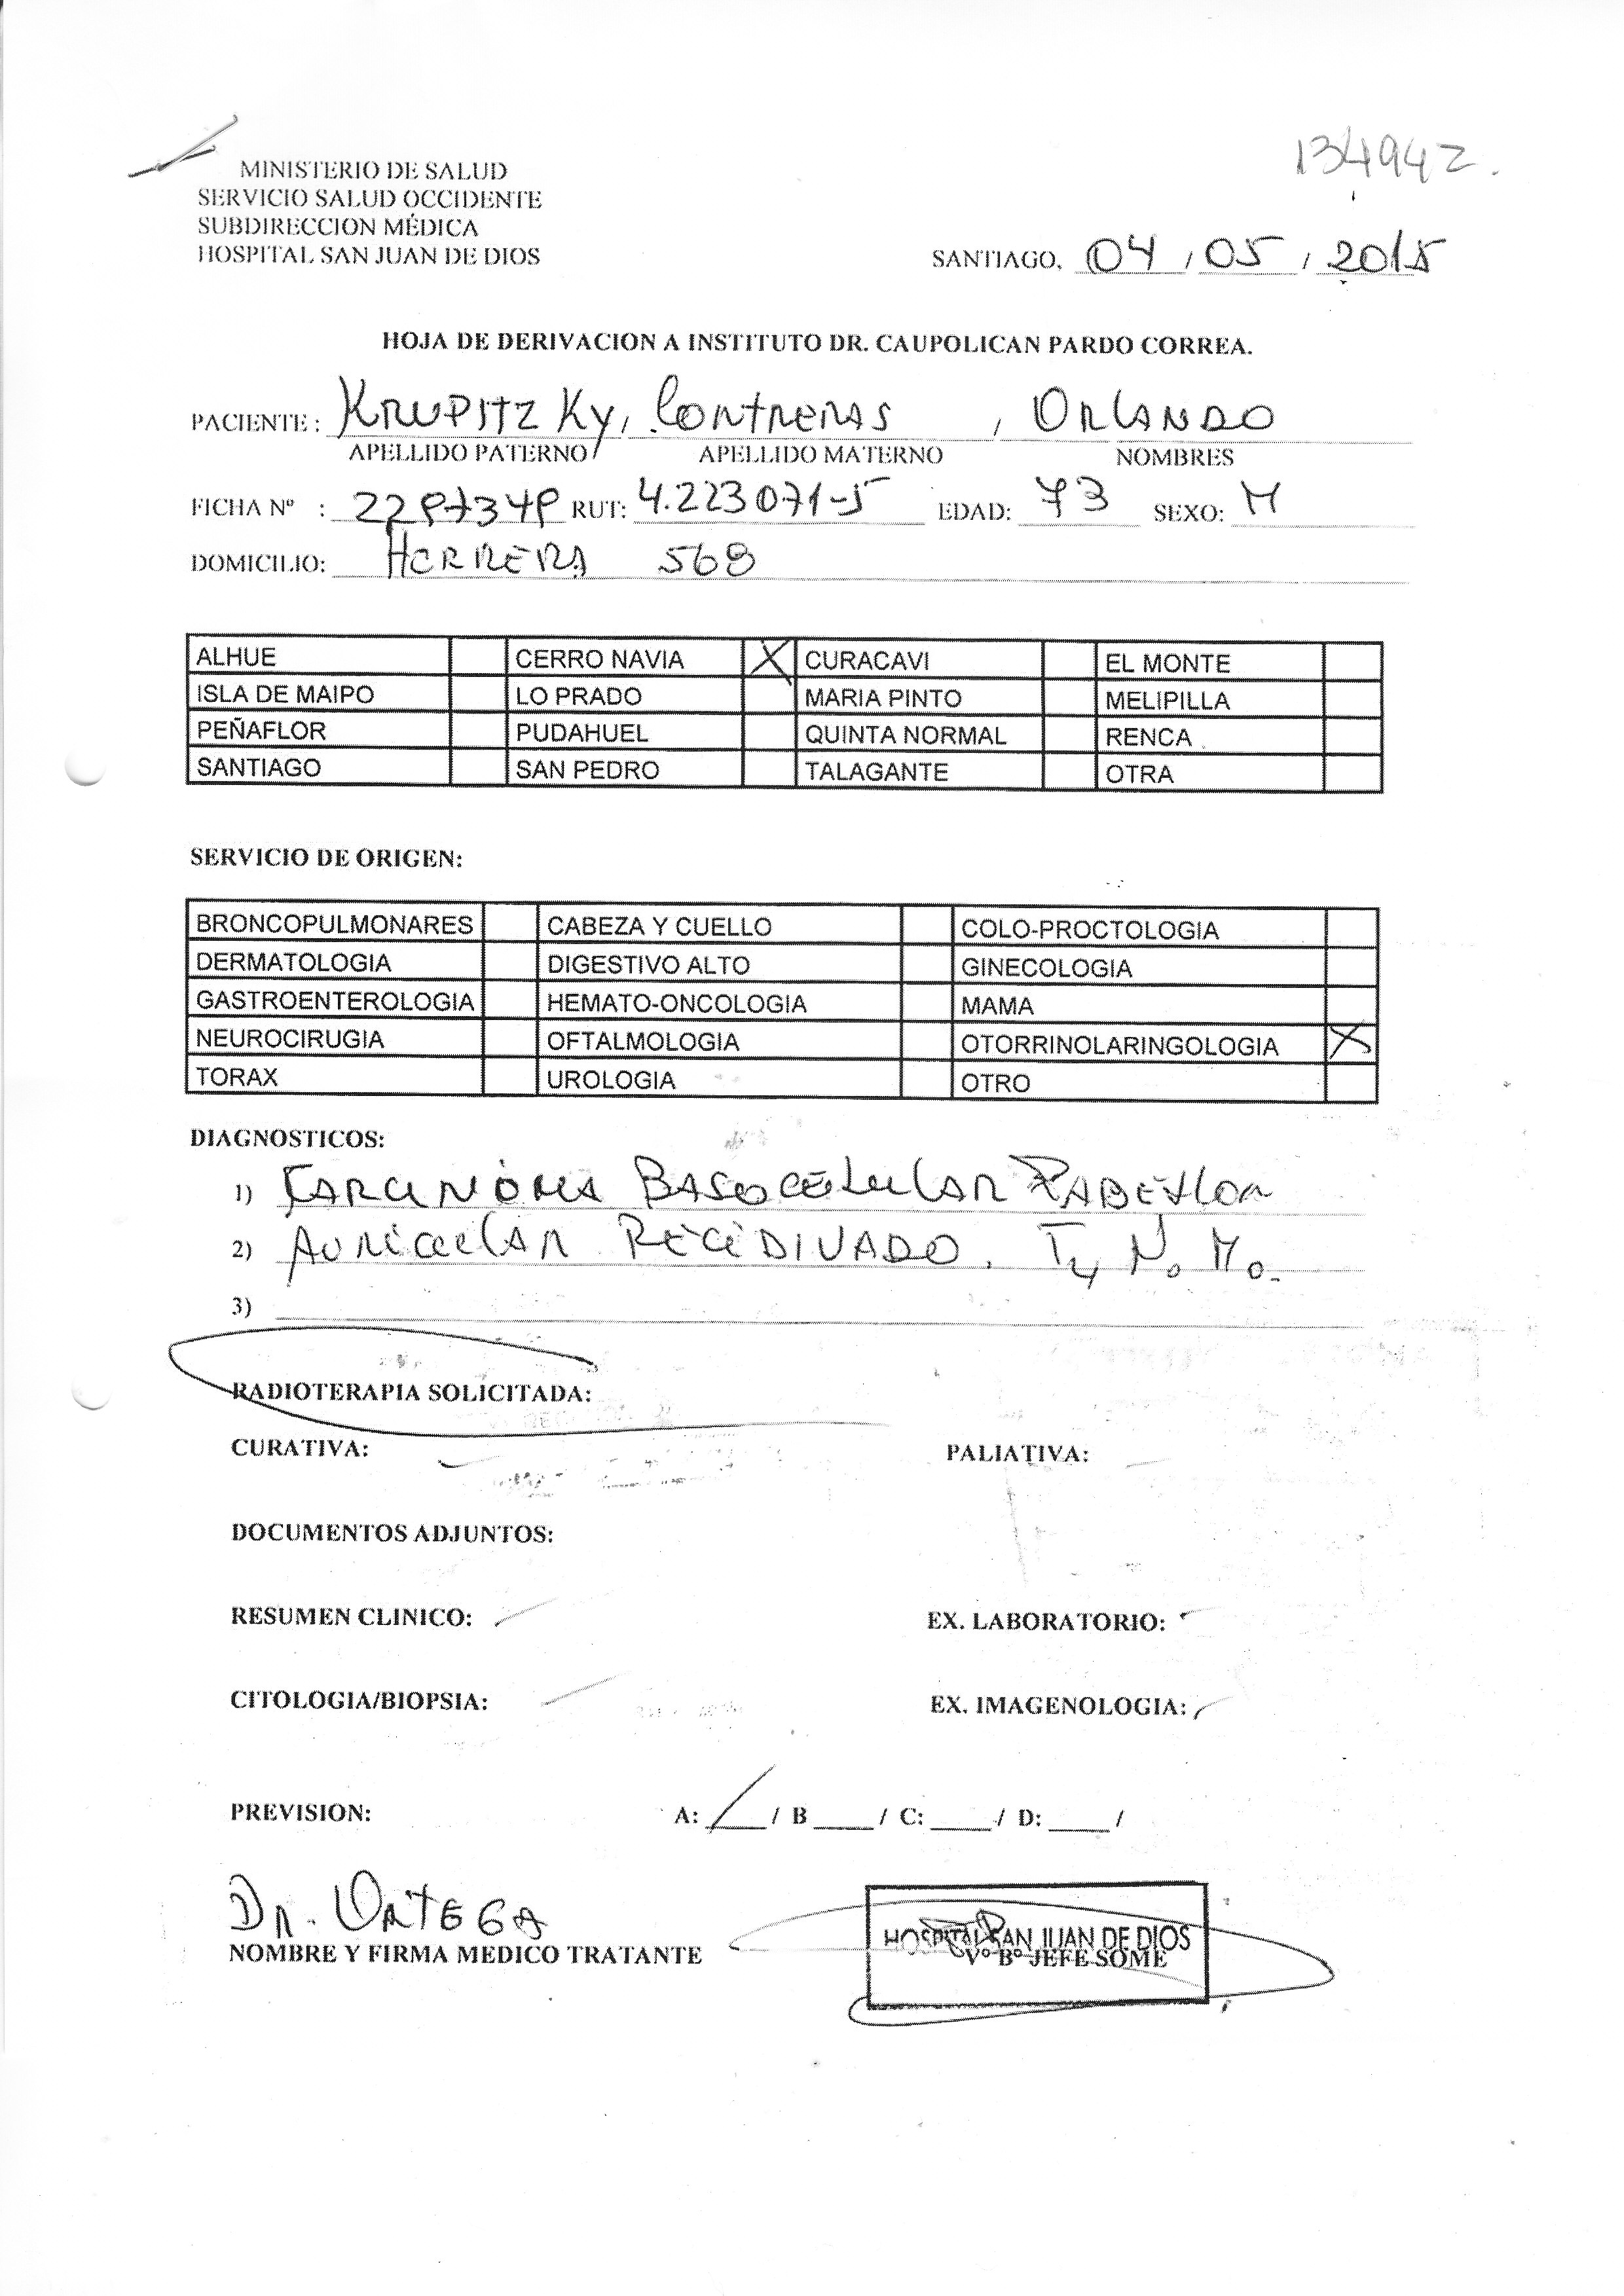 134942.
MINISTERIO DE SALUD
SERVICIO SALUD OCCIDENTE
SUBDIRECCION MÉDICA
HOSPITAL SAN JUAN DE DIOS
SANTIAGO, 04 / 05 / 2015
HOJA DE DERIVACION A INSTITUTO DR. CAUPOLICAN PARDO CORREA.
PACIENTE : KRUPITZKY, CONTRERAS , ORLANDO
APELLIDO PATERNO APELLIDO MATERNO NOMBRES
FICHA Nº : RUT: 4.223071-5 EDAD: 73 SEXO: M
DOMICILIO: HERRERA 568
ALHUE CERRO NAVIA X CURACAVI EL MONTE
ISLA DE MAIPO LO PRADO MARIA PINTO MELIPILLA
PEÑAFLOR PUDAHUEL QUINTA NORMAL RENCA
SANTIAGO SAN PEDRO TALAGANTE OTRA
SERVICIO DE ORIGEN:
BRONCOPULMONARES CABEZA Y CUELLO COLO-PROCTOLOGIA
DERMATOLOGIA DIGESTIVO ALTO GINECOLOGIA
GASTROENTEROLOGIA HEMATO-ONCOLOGIA MAMA
NEUROCIRUGIA OFTALMOLOGIA OTORRINOLARINGOLOGIA X
TORAX UROLOGIA OTRO
DIAGNOSTICOS:
1) CARCINOMA BASOCELULAR PABELLON
2) AURICULAR RECIDIVADO. T4 N0 M0.
3)
RADIOTERAPIA SOLICITADA:
CURATIVA: PALIATIVA:
DOCUMENTOS ADJUNTOS:
RESUMEN CLINICO: EX. LABORATORIO:
CITOLOGIA/BIOPSIA: EX. IMAGENOLOGIA:
PREVISION: A: / / B / C: / D: /
DR. ORTEGA
NOMBRE Y FIRMA MEDICO TRATANTE
HOSPITAL SAN JUAN DE DIOS
Vº Bº JEFE SOME